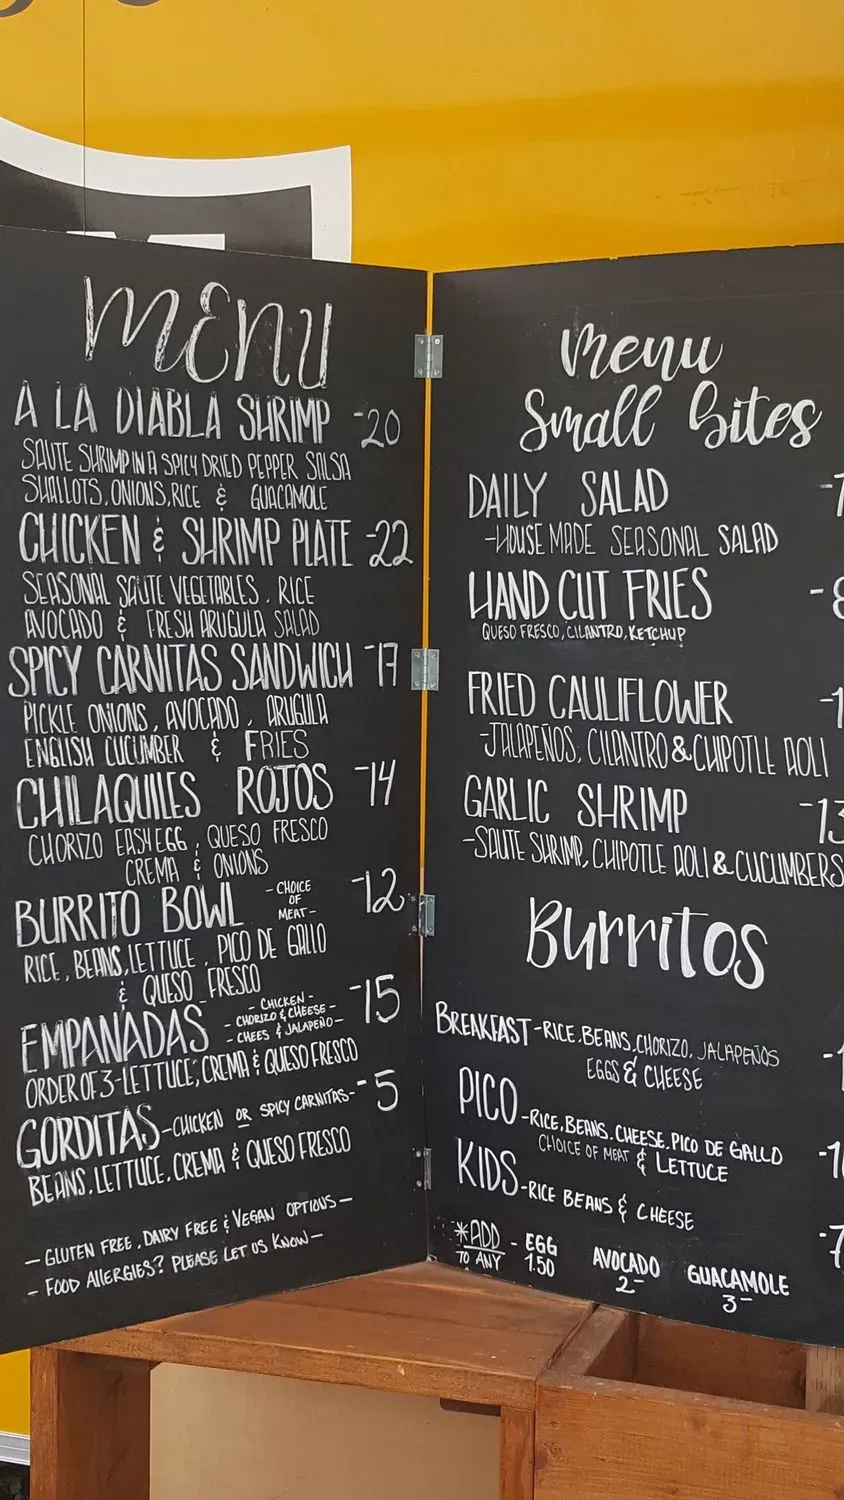 MENU
A LA DIABLA SHRIMP -20
SAUTE SHRIMP IN A SPICY DRIED PEPPER SALSA
SHALLOTS, ONIONS, RICE & GUACAMOLE
CHICKEN & SHRIMP PLATE -22
SEASONAL SAUTE VEGETABLES, RICE
AVOCADO & FRESH ARUGULA SALAD
SPICY CARNITAS SANDWICH -17
PICKLE ONIONS, AVOCADO, ARUGULA
ENGLISH CUCUMBER & FRIES
CHILAQUILES ROJOS -14
CHORIZO EASY EGG, QUESO FRESCO
CREMA & ONIONS
BURRITO BOWL -CHOICE OF MEAT- -12
RICE, BEANS, LETTUCE, PICO DE GALLO
& QUESO FRESCO
EMPANADAS -15
- CHICKEN -
- CHORIZO & CHEESE -
- CHEES & JALAPEÑO -
ORDER OF 3-LETTUCE, CREMA & QUESO FRESCO
GORDITAS -CHICKEN OR SPICY CARNITAS- -5
BEANS, LETTUCE, CREMA & QUESO FRESCO
- GLUTEN FREE, DAIRY FREE & VEGAN OPTIONS -
- FOOD ALLERGIES? PLEASE LET US KNOW -
Menu
Small Bites
DAILY SALAD
-HOUSE MADE SEASONAL SALAD
HAND CUT FRIES
QUESO FRESCO, CILANTRO, KETCHUP
FRIED CAULIFLOWER
-JALAPEÑOS, CILANTRO & CHIPOTLE AOLI
GARLIC SHRIMP -13
-SAUTE SHRIMP, CHIPOTLE AOLI & CUCUMBERS
Burritos
BREAKFAST -RICE, BEANS, CHORIZO, JALAPEÑOS
EGGS & CHEESE
PICO -RICE, BEANS, CHEESE, PICO DE GALLO
CHOICE OF MEAT & LETTUCE
KIDS -RICE BEANS & CHEESE
*ADD TO ANY - EGG 1.50 AVOCADO 2- GUACAMOLE 3-